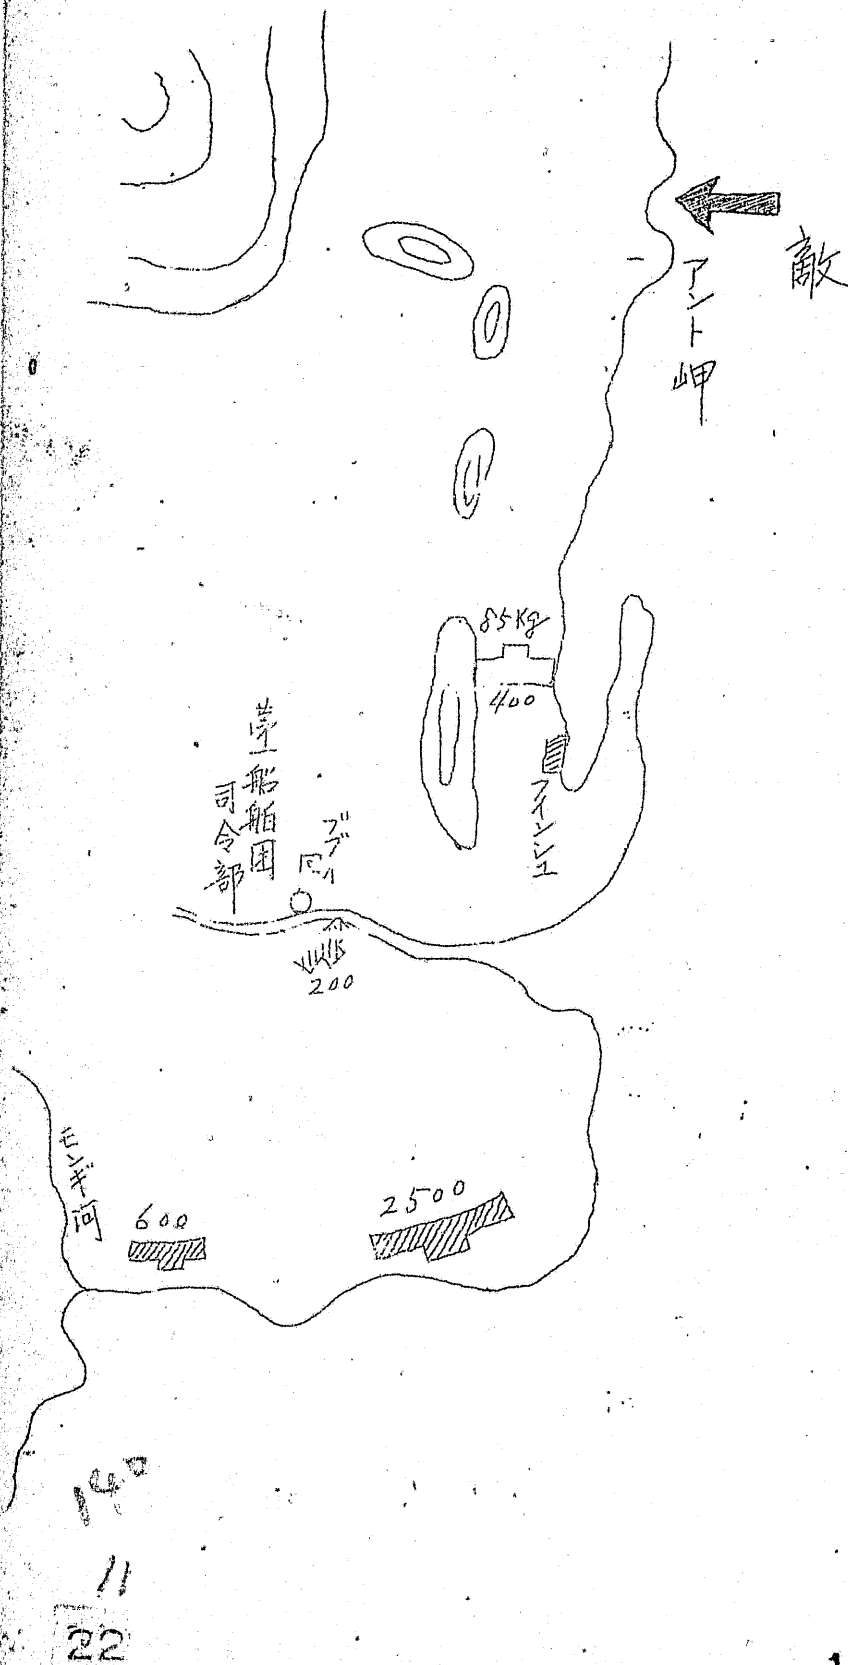 敵
アント岬
85Kg
400
フインシュ
第一船舶団
司令部
ブブイ
200
モンギ河
600
2500
140
11
22
1